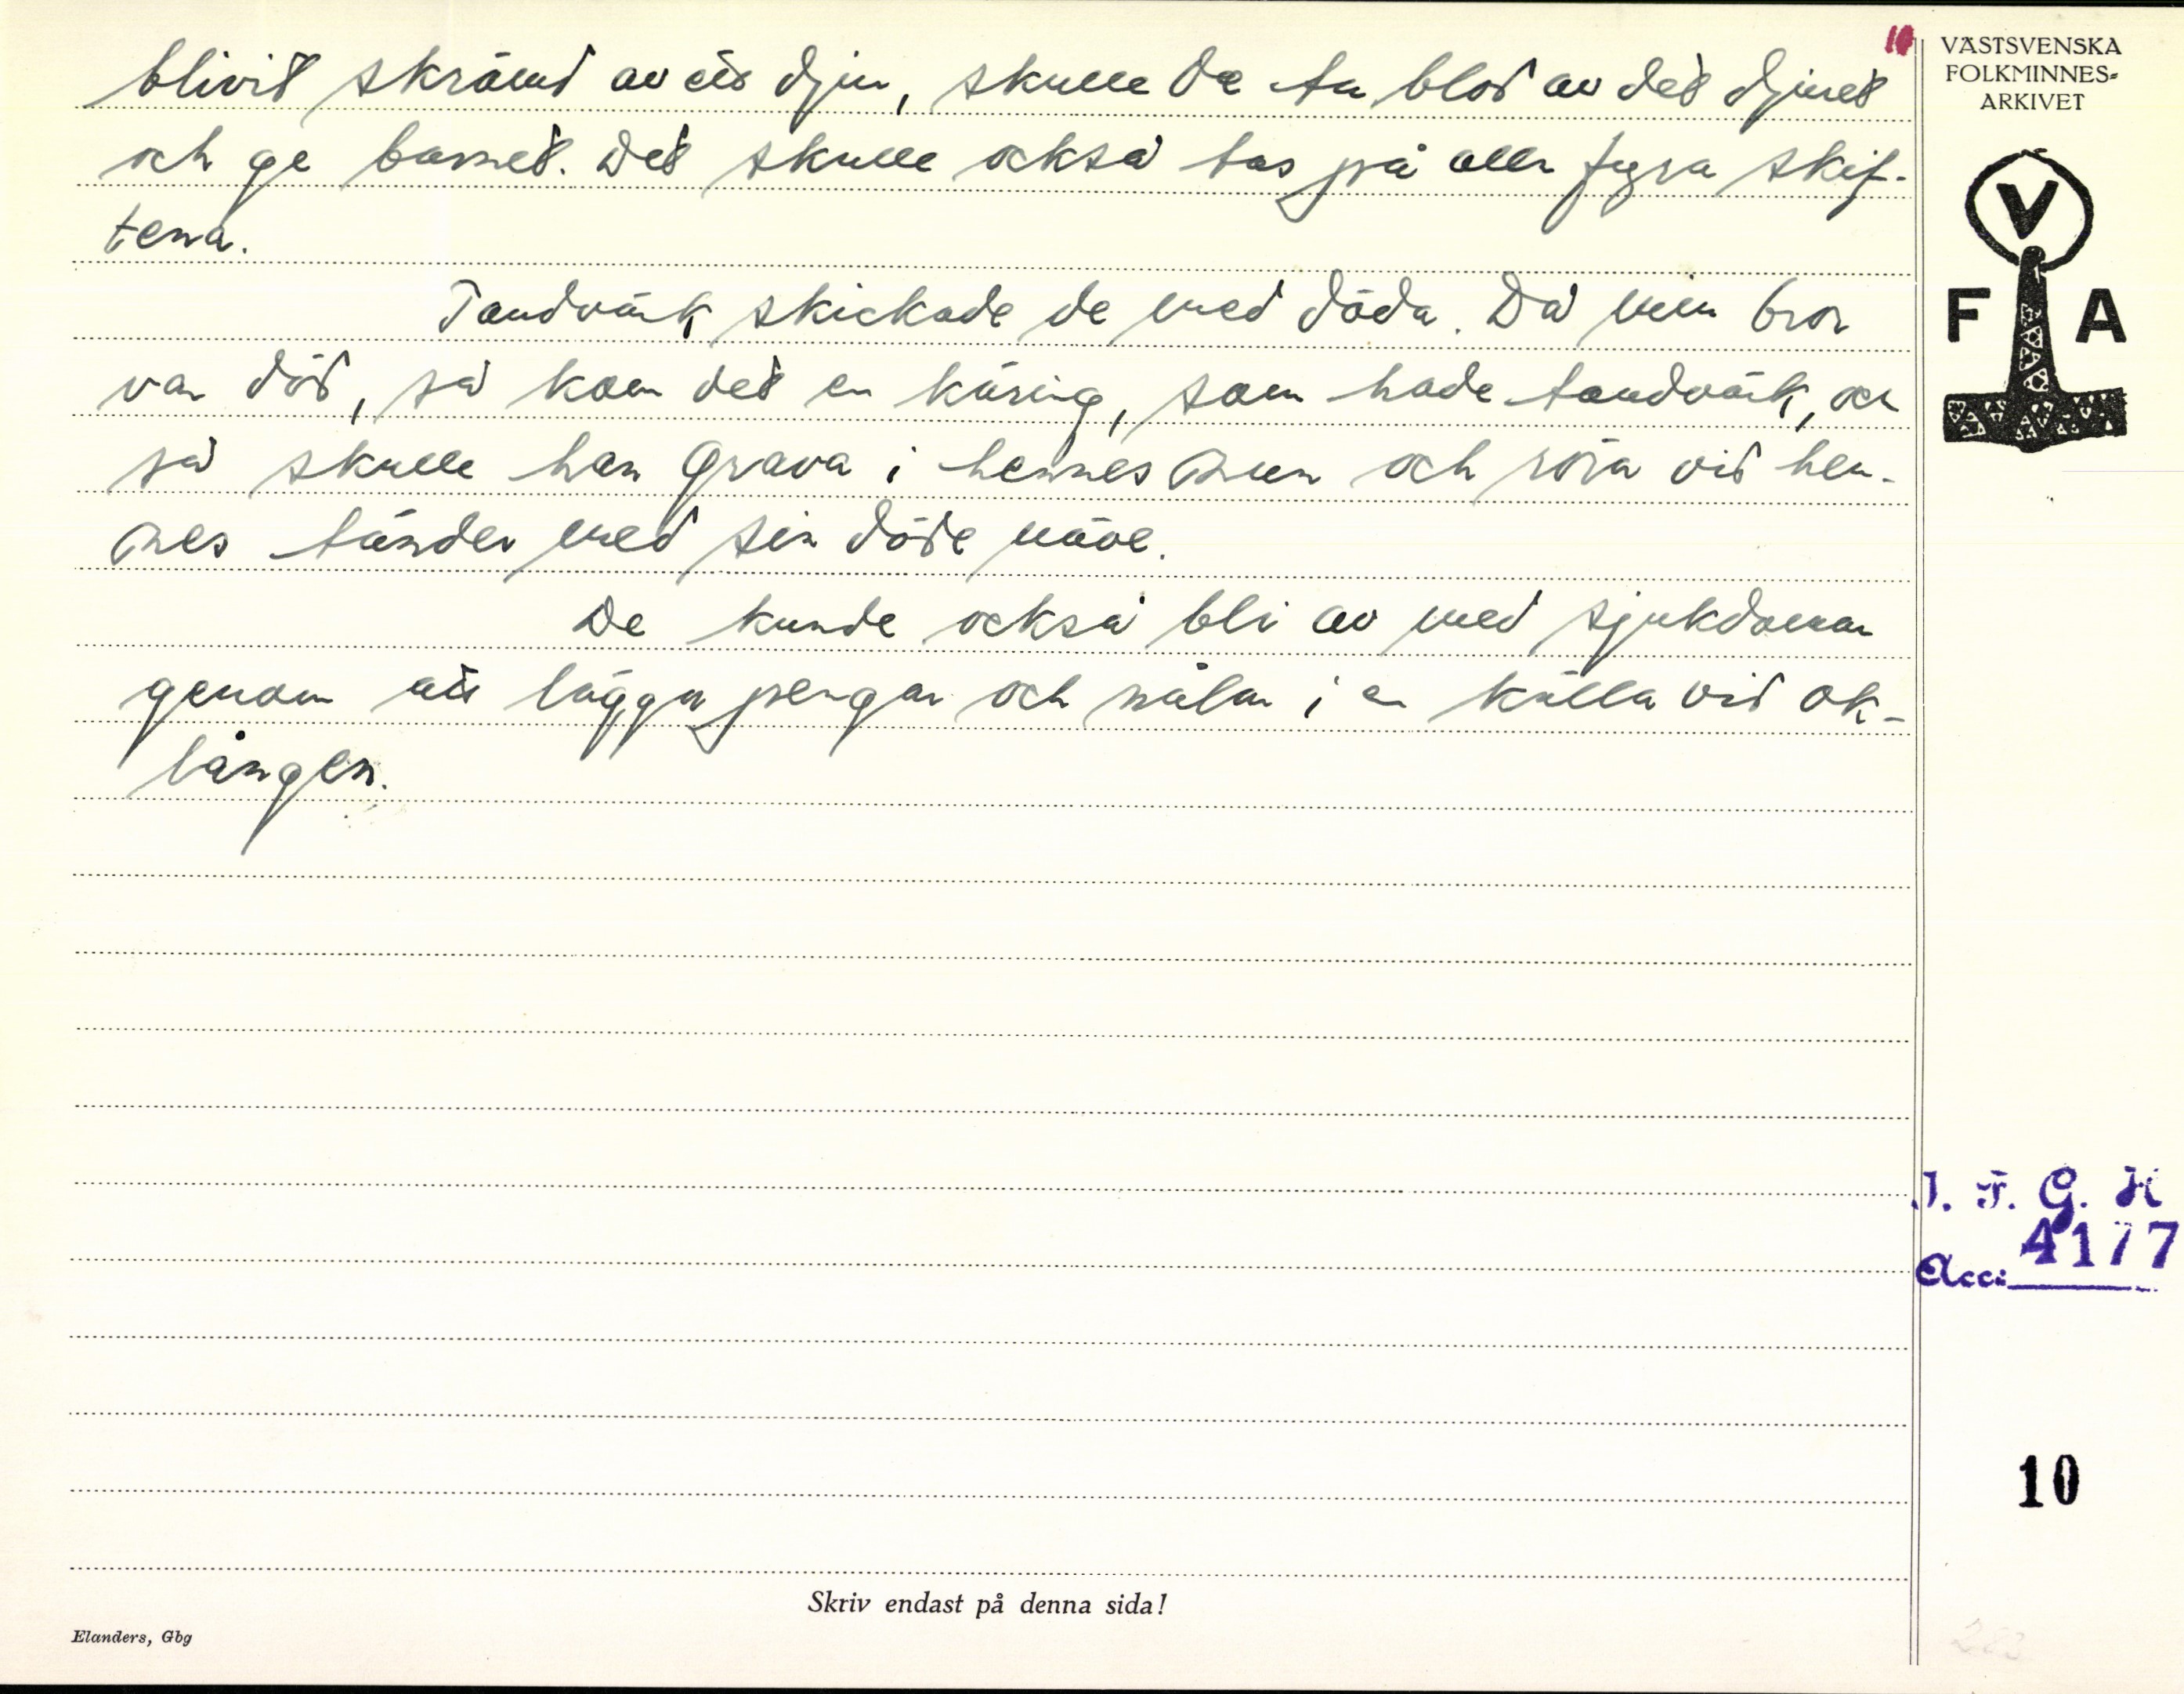 10
blivit skrämd av ett djur, skulle de ta blod av det djuret
och ge barnet. Det skulle också tas på alla fyra skif-
tena.
Tandvärk skickade de med döda. Då min bror
var död, så kom det en käring, som hade tandvärk, och
så skulle han grava i hennes mun och röra vid hen-
nes tänder med sin döde näve.
De kunde också bli av med sjukdomar
genom att lägga pengar och nålar i en källa vid Ok-
lången.
VÄSTSVENSKA
FOLKMINNES-
ARKIVET
V
F A
I. F. G. H
Acc: 4177
10
Skriv endast på denna sida!
Elanders, Gbg